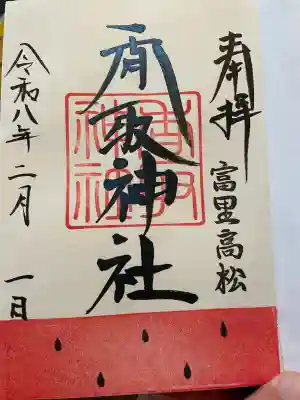 奉拝
富里高松
香取神社
香取
神社
令和八年二月一日